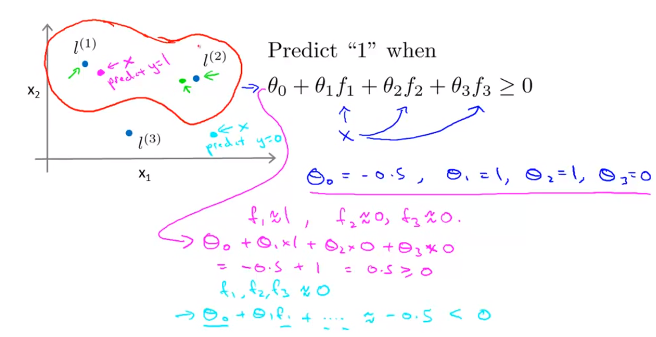 l^(1)
← x
predict y=1
l^(2)
←
x₂
l^(3)
← x
predict y=0
x₁
Predict “1” when
→ θ₀ + θ₁f₁ + θ₂f₂ + θ₃f₃ ≥ 0
x
θ₀ = -0.5 , θ₁ = 1, θ₂ = 1, θ₃ = 0
f₁ ≈ 1 , f₂ ≈ 0, f₃ ≈ 0.
→ θ₀ + θ₁×1 + θ₂×0 + θ₃×0
= -0.5 + 1 = 0.5 ≥ 0
f₁, f₂, f₃ ≈ 0
→ θ₀ + θ₁f₁ + .... ≈ -0.5 < 0